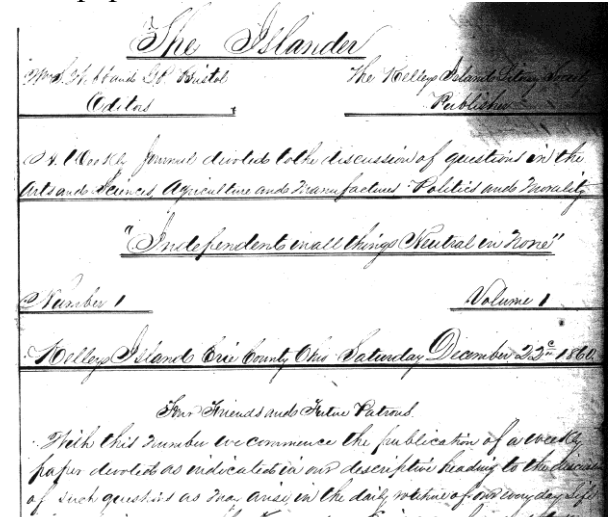 The Islander
and G. Bristol
Editors
The Kelleys Island Literary Society
Publisher
A Weekly Journal devoted to the discussion of questions in the
Arts and Sciences, Agriculture and Manufactures Politics and Morality
"Independent in all things Neutral in None"
Number 1
Volume 1
Kelleys Island Erie County Ohio Saturday December 22d 1860
Friends and Future Patrons.
With this number we commence the publication of a weekly
paper devoted as indicated in our descriptive heading to the discussion
of such questions as may arise in the daily routine of our every day life